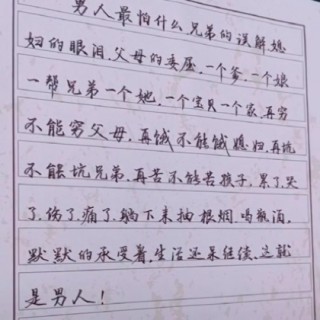 男人最怕什么兄弟的误解媳
妇的眼泪,父母的委屈,一个爹,一个娘
一帮兄弟一个她,一个宝贝一个家,再穷
不能穷父母,再饿不能饿媳妇,再坑
不能坑兄弟,再苦不能苦孩子,累了,哭
了,伤了,痛了,躺下来抽根烟,喝瓶酒,
默默的承受着,生活还呆继续,这就
是男人!